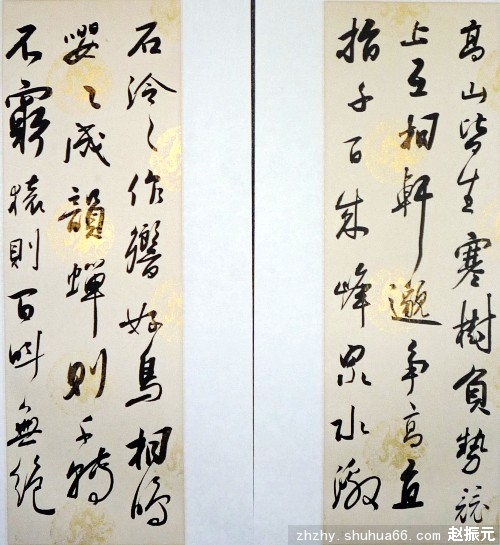 高山皆生寒樹負勢競
上互相軒邈争高直
指千百成峰泉水激
石泠〻作響好鳥相鳴
嚶〻成韻蟬則千轉
不窮猿則百叫無絶
zhzhy.shuhua66.com 赵振元